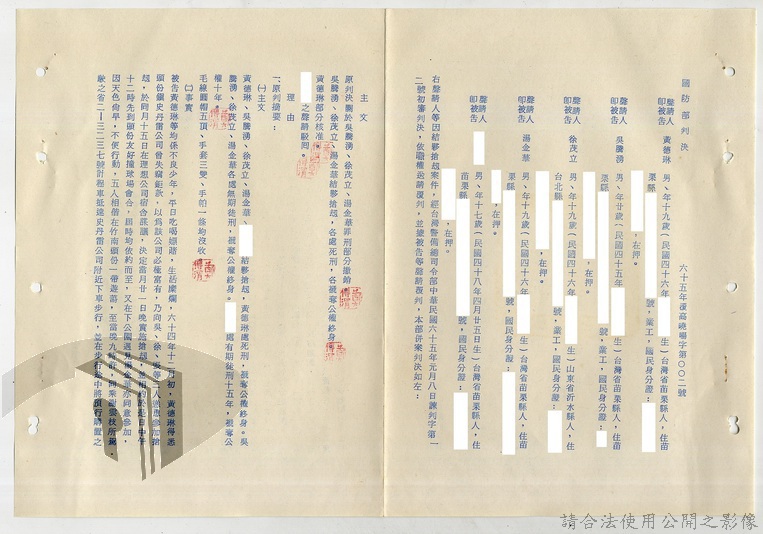 國防部判決
六十五年覆高曉暘字第〇〇二號
聲請人
即被告 黃德琳 男、年十九歲(民國四十六年 生)台灣省苗栗縣人,住苗
栗縣 號,業工,國民身分證:
,在押。
聲請人
即被告 吳騰湧 男、年廿歲(民國四十五年 生)台灣省苗栗縣人,住苗
栗縣 號,業工,國民身分證:
,在押。
聲請人
即被告 徐茂立 男、年十九歲(民國四十六年 生)山東省沂水縣人,住
台北縣 號,業工,國民身分證:
,在押。
聲請人
即被告 湯金華 男、年十九歲(民國四十六年 生)台灣省苗栗縣人,住苗
栗縣 號,業工,國民身分證:
,在押。
聲請人
即被告 男、年十七歲(民國四十八年四月廿五日生)台灣省苗栗縣人,住
苗栗縣 號,國民身分證:
,在押。
右聲請人等因結夥搶劫案件,經台灣警備總司令部中華民國六十五年元月八日諫判字第一
二號初審判決,依職權送請覆判,並據被告等聲請覆判,本部併案判決如左:
主文
原判決關於吳騰湧、徐茂立、湯金華罪刑部分撤銷。
吳騰湧、徐茂立、湯金華結夥搶劫,各處死刑,各褫奪公權終身。
黃德琳部分核准。
之聲請駁回。
理由
一、原判摘要:
㈠主文
黃德琳、吳騰湧、徐茂立、湯金華、 結夥搶劫,黃德琳處死刑,褫奪公權終身。吳
騰湧、徐茂立、湯金華各處無期徒刑,褫奪公權終身。 處有期徒刑十五年,褫奪公
權十年。
毛線面帽五頂、手套三雙、手帕一條均沒收。
㈡事實
被告黃德琳等均係不良少年,平日吃喝嫖賭,生活糜爛,六十四年十一月初,黃德琳得悉
頭份鎮史丹雷公司曾失竊鉅款,以為該公司必極富有,乃向吳、徐、 等人遊說參加搶
劫,於同月十五日在理想公司宿舍謀議,決定當月廿一日晚實施搶劫,並相約於是日中午
十二時先到頭份友好撞球場會合,屆時均依約而至,又在下公園遇見湯金華亦同意參加,
因天色尚早,不便行動,五人相偕在竹南頭份一帶遊蕩,至當晚九時許,同乘謝雲枝所駕
駛之省二-三二三七號計程車抵達史丹雷公司附近下車步行,並在步行途中將預行購置之
請合法使用公開之影像